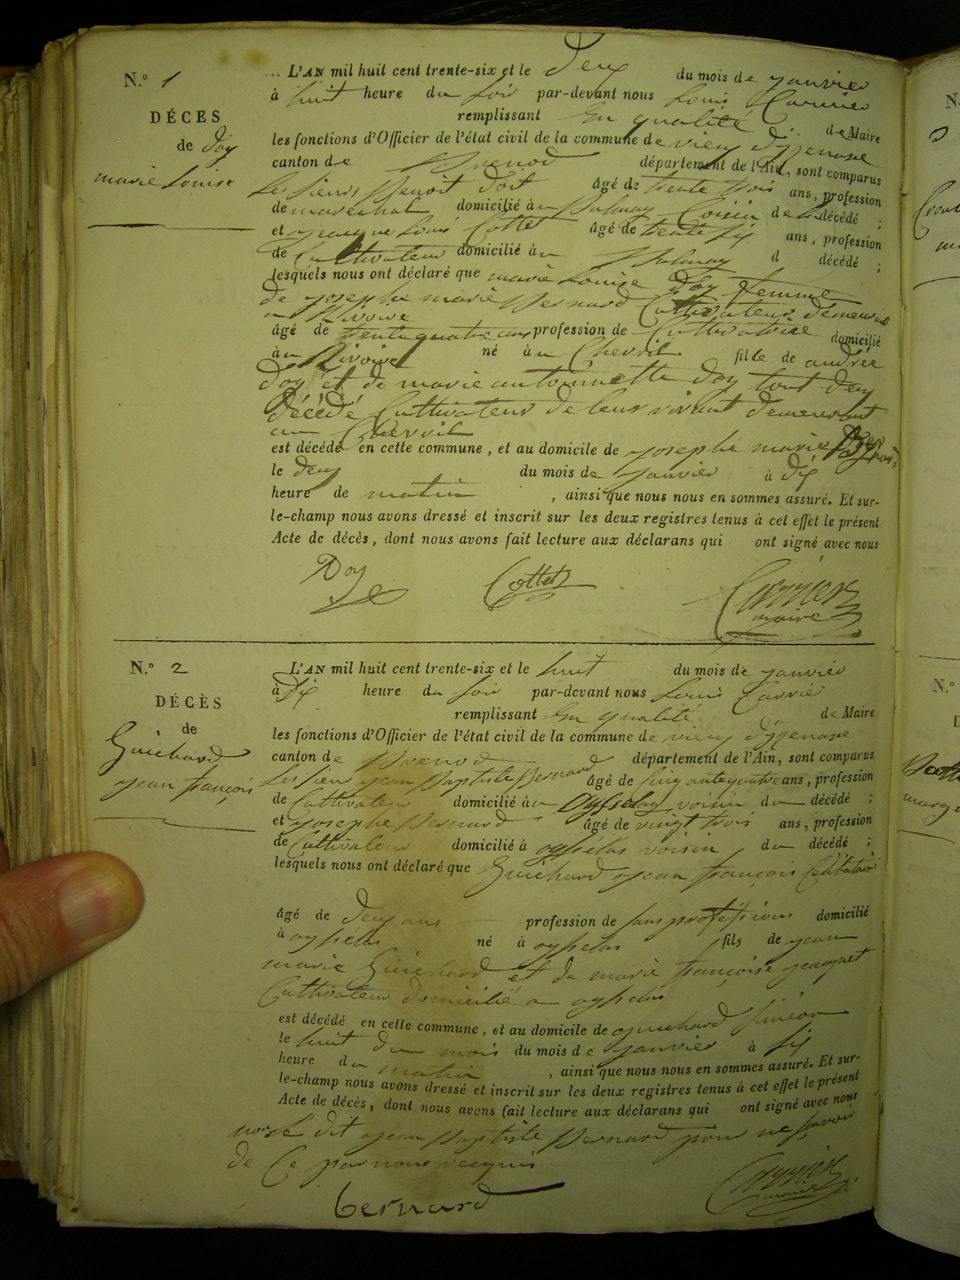 N.° 1
DÉCES
de Doy
marie Louise
L'AN mil huit cent trente-six et le deux du mois de janvier
à huit heure du soir par-devant nous Louis Carrier
remplissant En qualité de Maire
les fonctions d'Officier de l'état civil de la commune de vieu d'izenave
canton de Brenod département de l'Ain, sont comparus
Les sieurs Benoit Doit âgé de trente trois ans, profession
de marechal domicilié à Balmay voisin de la décédé ;
et jacque Louis Cottet âgé de trente six ans, profession
de Cultivateur domicilié à Balmay d décédé ;
lesquels nous ont déclaré que marie Louise Doy femme
de josephe marie Bernard Cultivateur demeurant
âgé de trente quatre ans profession de Cultivatrice domicilié
à né à Chevril fille de andrée
Doy et de marie antoinette Doy tout deux
décédé Cultivateur de leur vivant demeurant
au Chevril
est décédé en cette commune, et au domicile de josephe marie
le deux du mois de janvier à dix
heure de matin , ainsi que nous nous en sommes assuré. Et sur-
le-champ nous avons dressé et inscrit sur les deux registres tenus à cet effet le présent
Acte de décès, dont nous avons fait lecture aux déclarans qui ont signé avec nous
Doy Cottet Carrier
maire
N.° 2
DÉCÈS
de
Guichard
jean françois
L'AN mil huit cent trente-six et le huit du mois de janvier
à dix heure du soir par-devant nous Louis Carrié
remplissant En qualité de Maire
les fonctions d'Officier de l'état civil de la commune de vieu d'izenave
canton de Brenod département de l'Ain, sont comparus
Les sieur jean Baptiste Bernard âgé de cinquante quatre ans, profession
de Cultivateur domicilié à voisin du décédé ;
et josephe Bernard âgé de vingt trois ans, profession
de Cultivateur domicilié à oysselas voisin du décédé ;
lesquels nous ont déclaré que Guichard jean françois Célibataire
âgé de Deux ans profession de sans profession domicilié
à oysselas né à oysselas fils de jean
marie Guichard et de marie françoise jacquet
Cultivateur domicilié a oysselas
est décédé en cette commune, et au domicile de guichard
le huit du mois du mois de janvier à six
heure du matin , ainsi que nous nous en sommes assuré. Et sur-
le-champ nous avons dressé et inscrit sur les deux registres tenus à cet effet le présent
Acte de décès, dont nous avons fait lecture aux déclarans qui ont signé avec nous
dit jean Baptiste Bernard pour ne savoir
de Ce par nous requis
bernard Carrier
maire